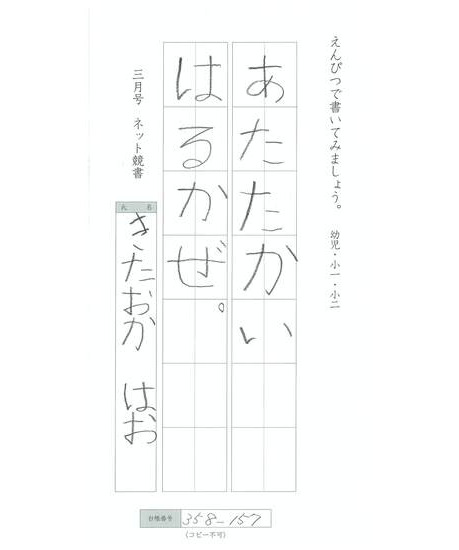 えんぴつで書いてみましょう。 幼児・小一・小二
あたたかい
はるかぜ。
三月号 ネット競書
氏名
きたおか はお
台帳番号 358-157
(コピー不可)